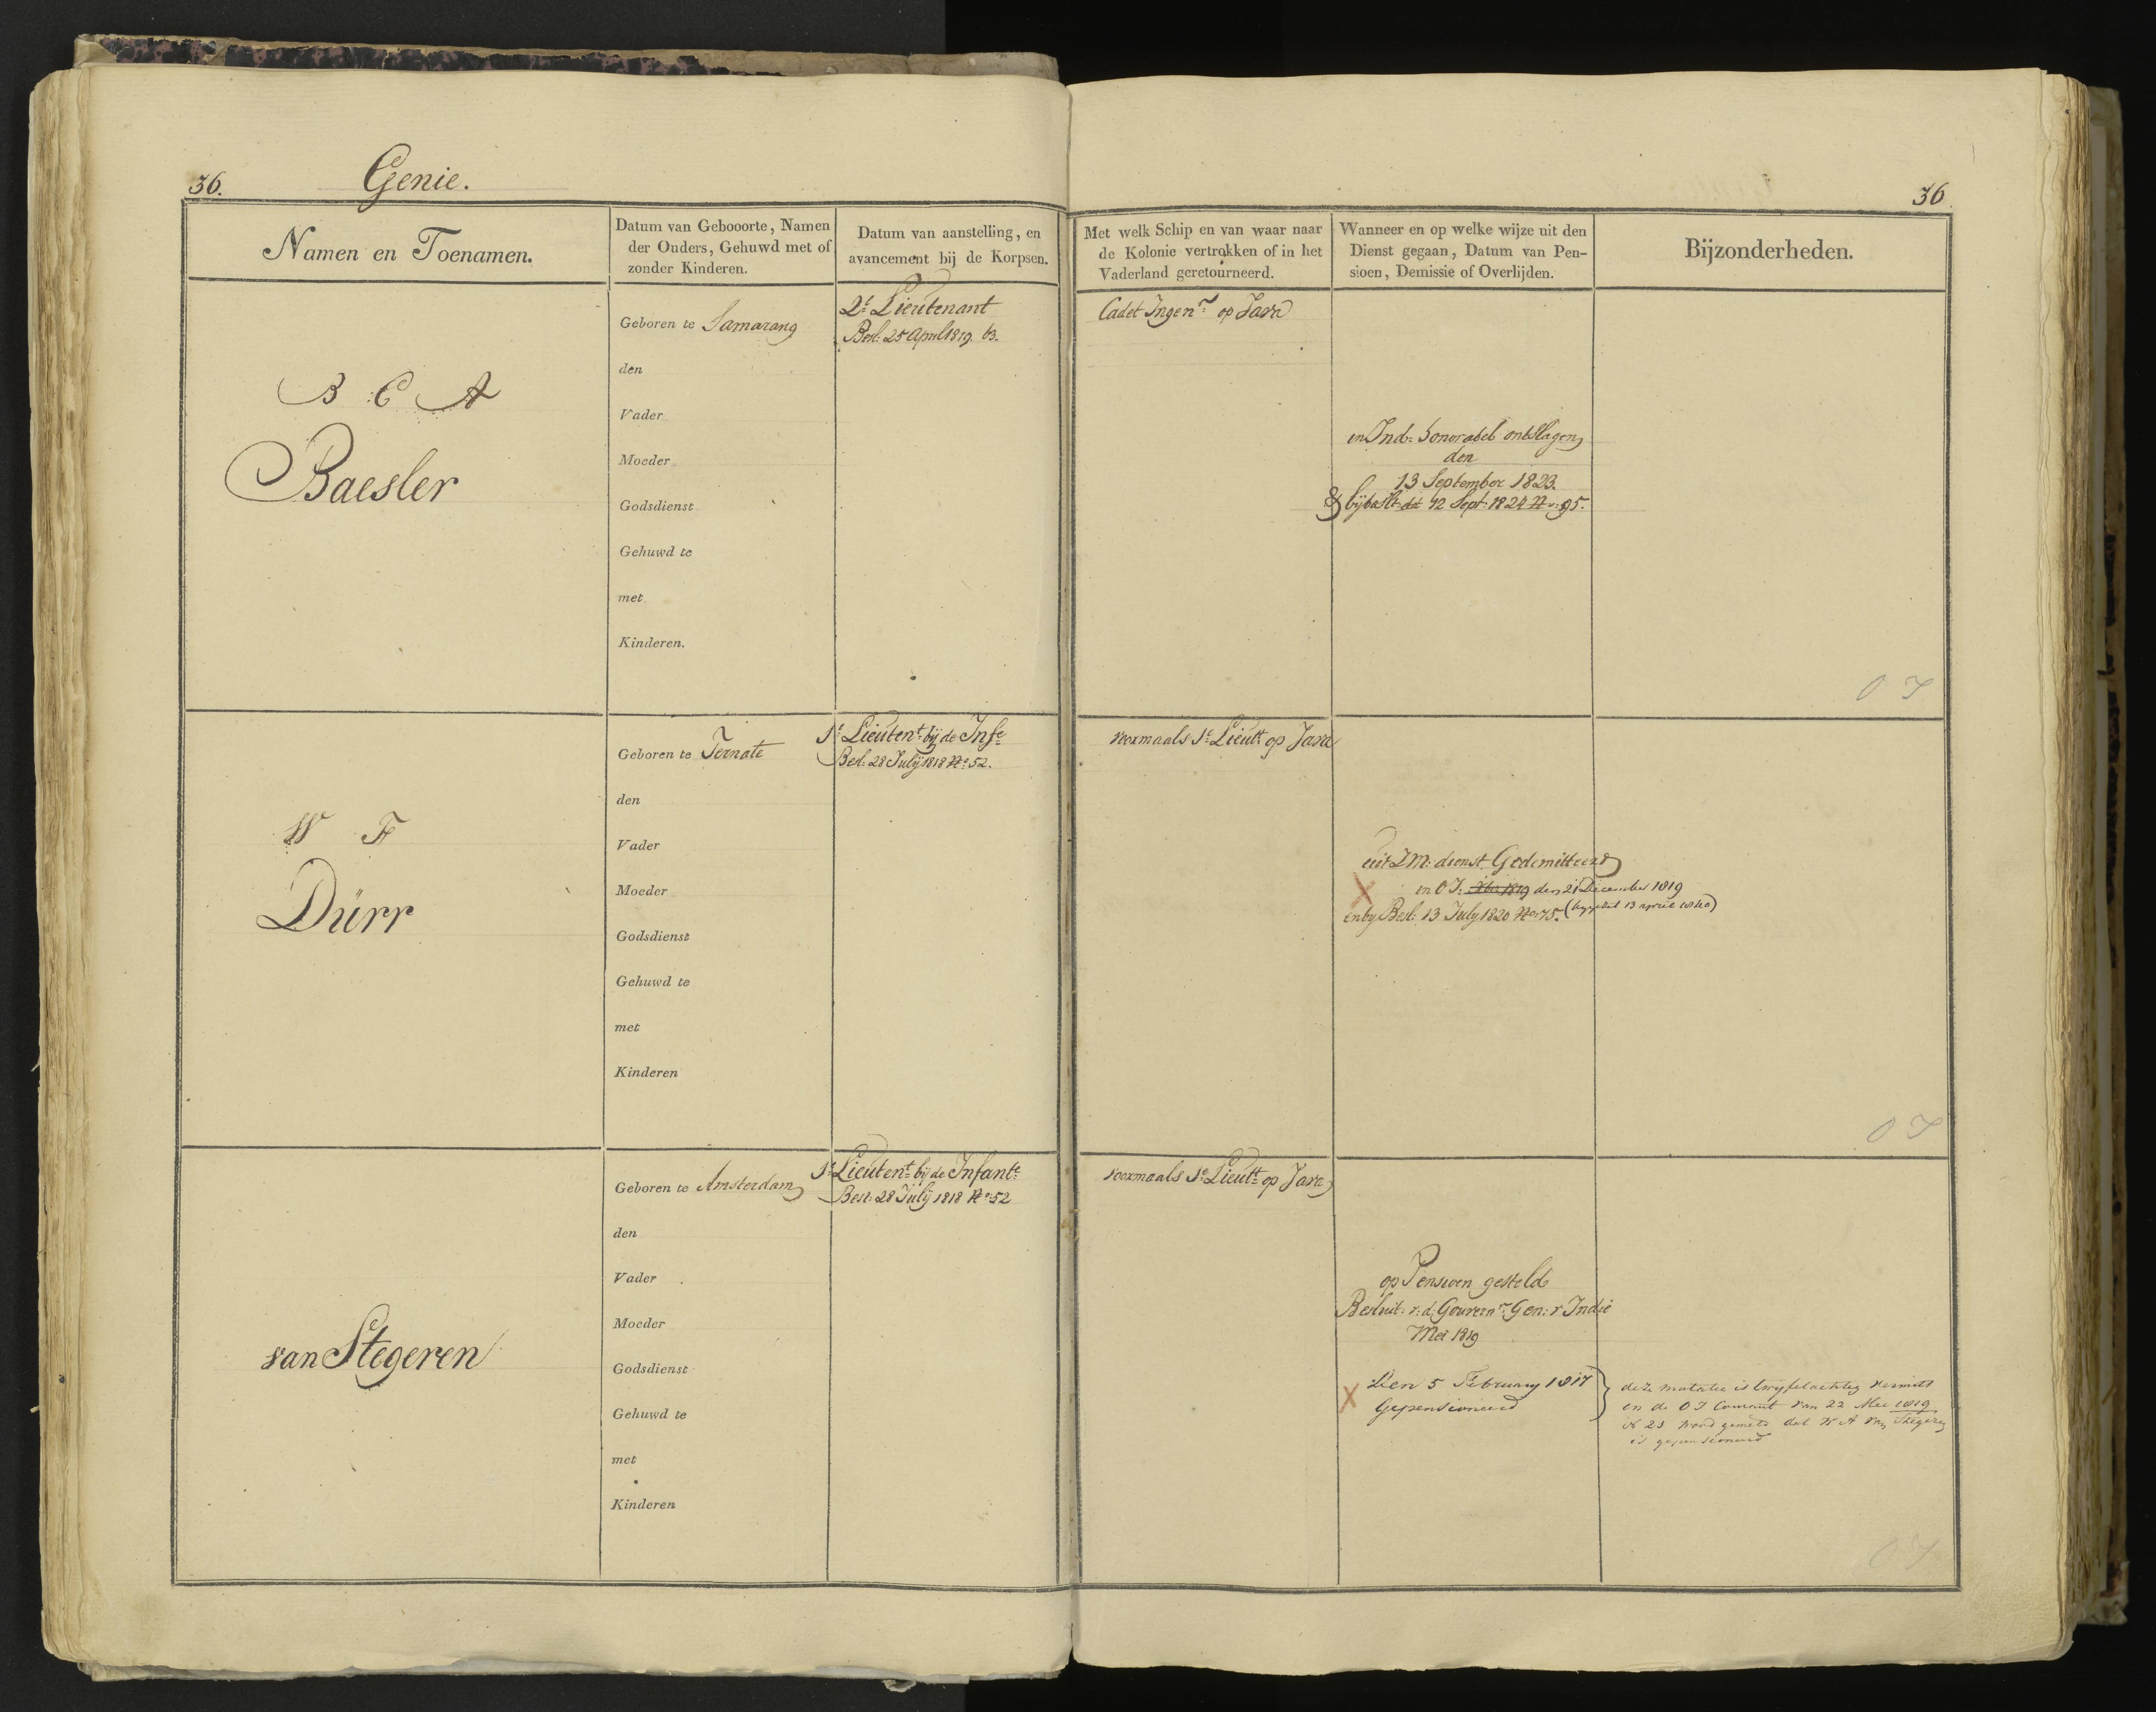 36.
Genie.
36
Namen en Toenamen.
Datum van Gebooorte, Namen
der Ouders, Gehuwd met of
zonder Kinderen.
Datum van aanstelling, en
avancement bij de Korpsen.
Met welk Schip en van waar naar
de Kolonie vertrokken of in het
Vaderland geretourneerd.
Wanneer en op welke wijze uit den
Dienst gegaan, Datum van Pen-
sioen, Demissie of Overlijden.
Bijzonderheden.
B C A
Baesler
Geboren te Samarang
den
Vader
Moeder
Godsdienst
Gehuwd te
met
Kinderen.
2e Lieutenant
Besl: 25 April 1819. 63.
Cadet Ingenr op Java
in Ind: honorabel ontslagen
den
13 September 1823.
12 Sept: 1824 No: 95.
O I
W F
Dürr
Geboren te Ternate
den
Vader
Moeder
Godsdienst
Gehuwd te
met
Kinderen
1e Lieutent bij de Infe
Besl: 28 Julij 1818 No: 52.
voormaals 1e Lieutt op Java
uit ZM: dienst Gedemitteerd
in O I: den 21 December 1819
en by Besl: 13 July 1820 No: 75.
O I
van Stegeren
Geboren te Amsterdam
den
Vader
Moeder
Godsdienst
Gehuwd te
met
Kinderen
1e Lieutent bij de Infante
Besl: 28 Julij 1818 No: 52
voormaals 1e Lieutt op Java
op Pensioen gesteld
Besluit: v: d: Gouvernr Gen: v Indie
Mei 1819
Den 5 February 1817
Gepensioneerd
deze mutatie is twyfelachtig vermits
in de O I Courant van 22 Mei 1819
N 21 word gemeld dat W A van Stegeren
is gepensioneerd
O I